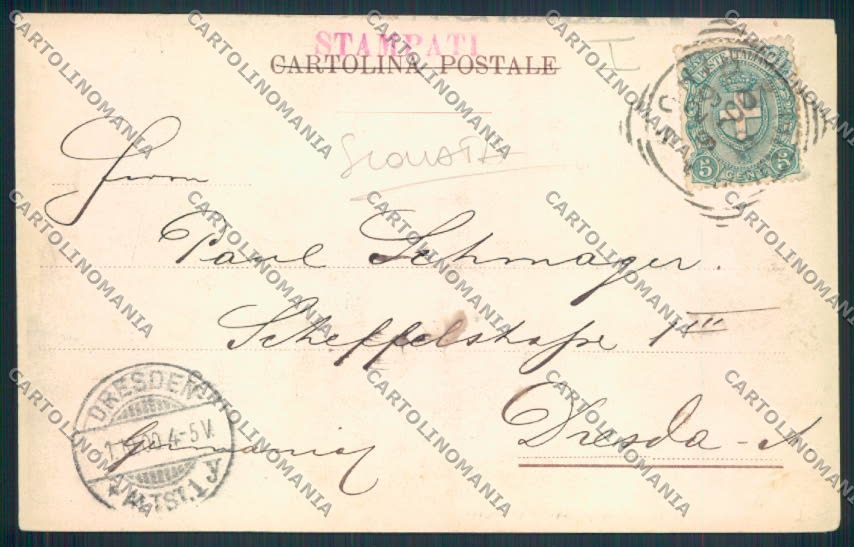 STAMPATI
CARTOLINA POSTALE
POSTE ITALIANE
5 CENT 5
Herrn
Paul Schmager.
Scheffelstraße 1 III
Dresda - A
Germania
DRESDEN
4-5 V.
ALTST. 1 y
CARTOLINOMANIA